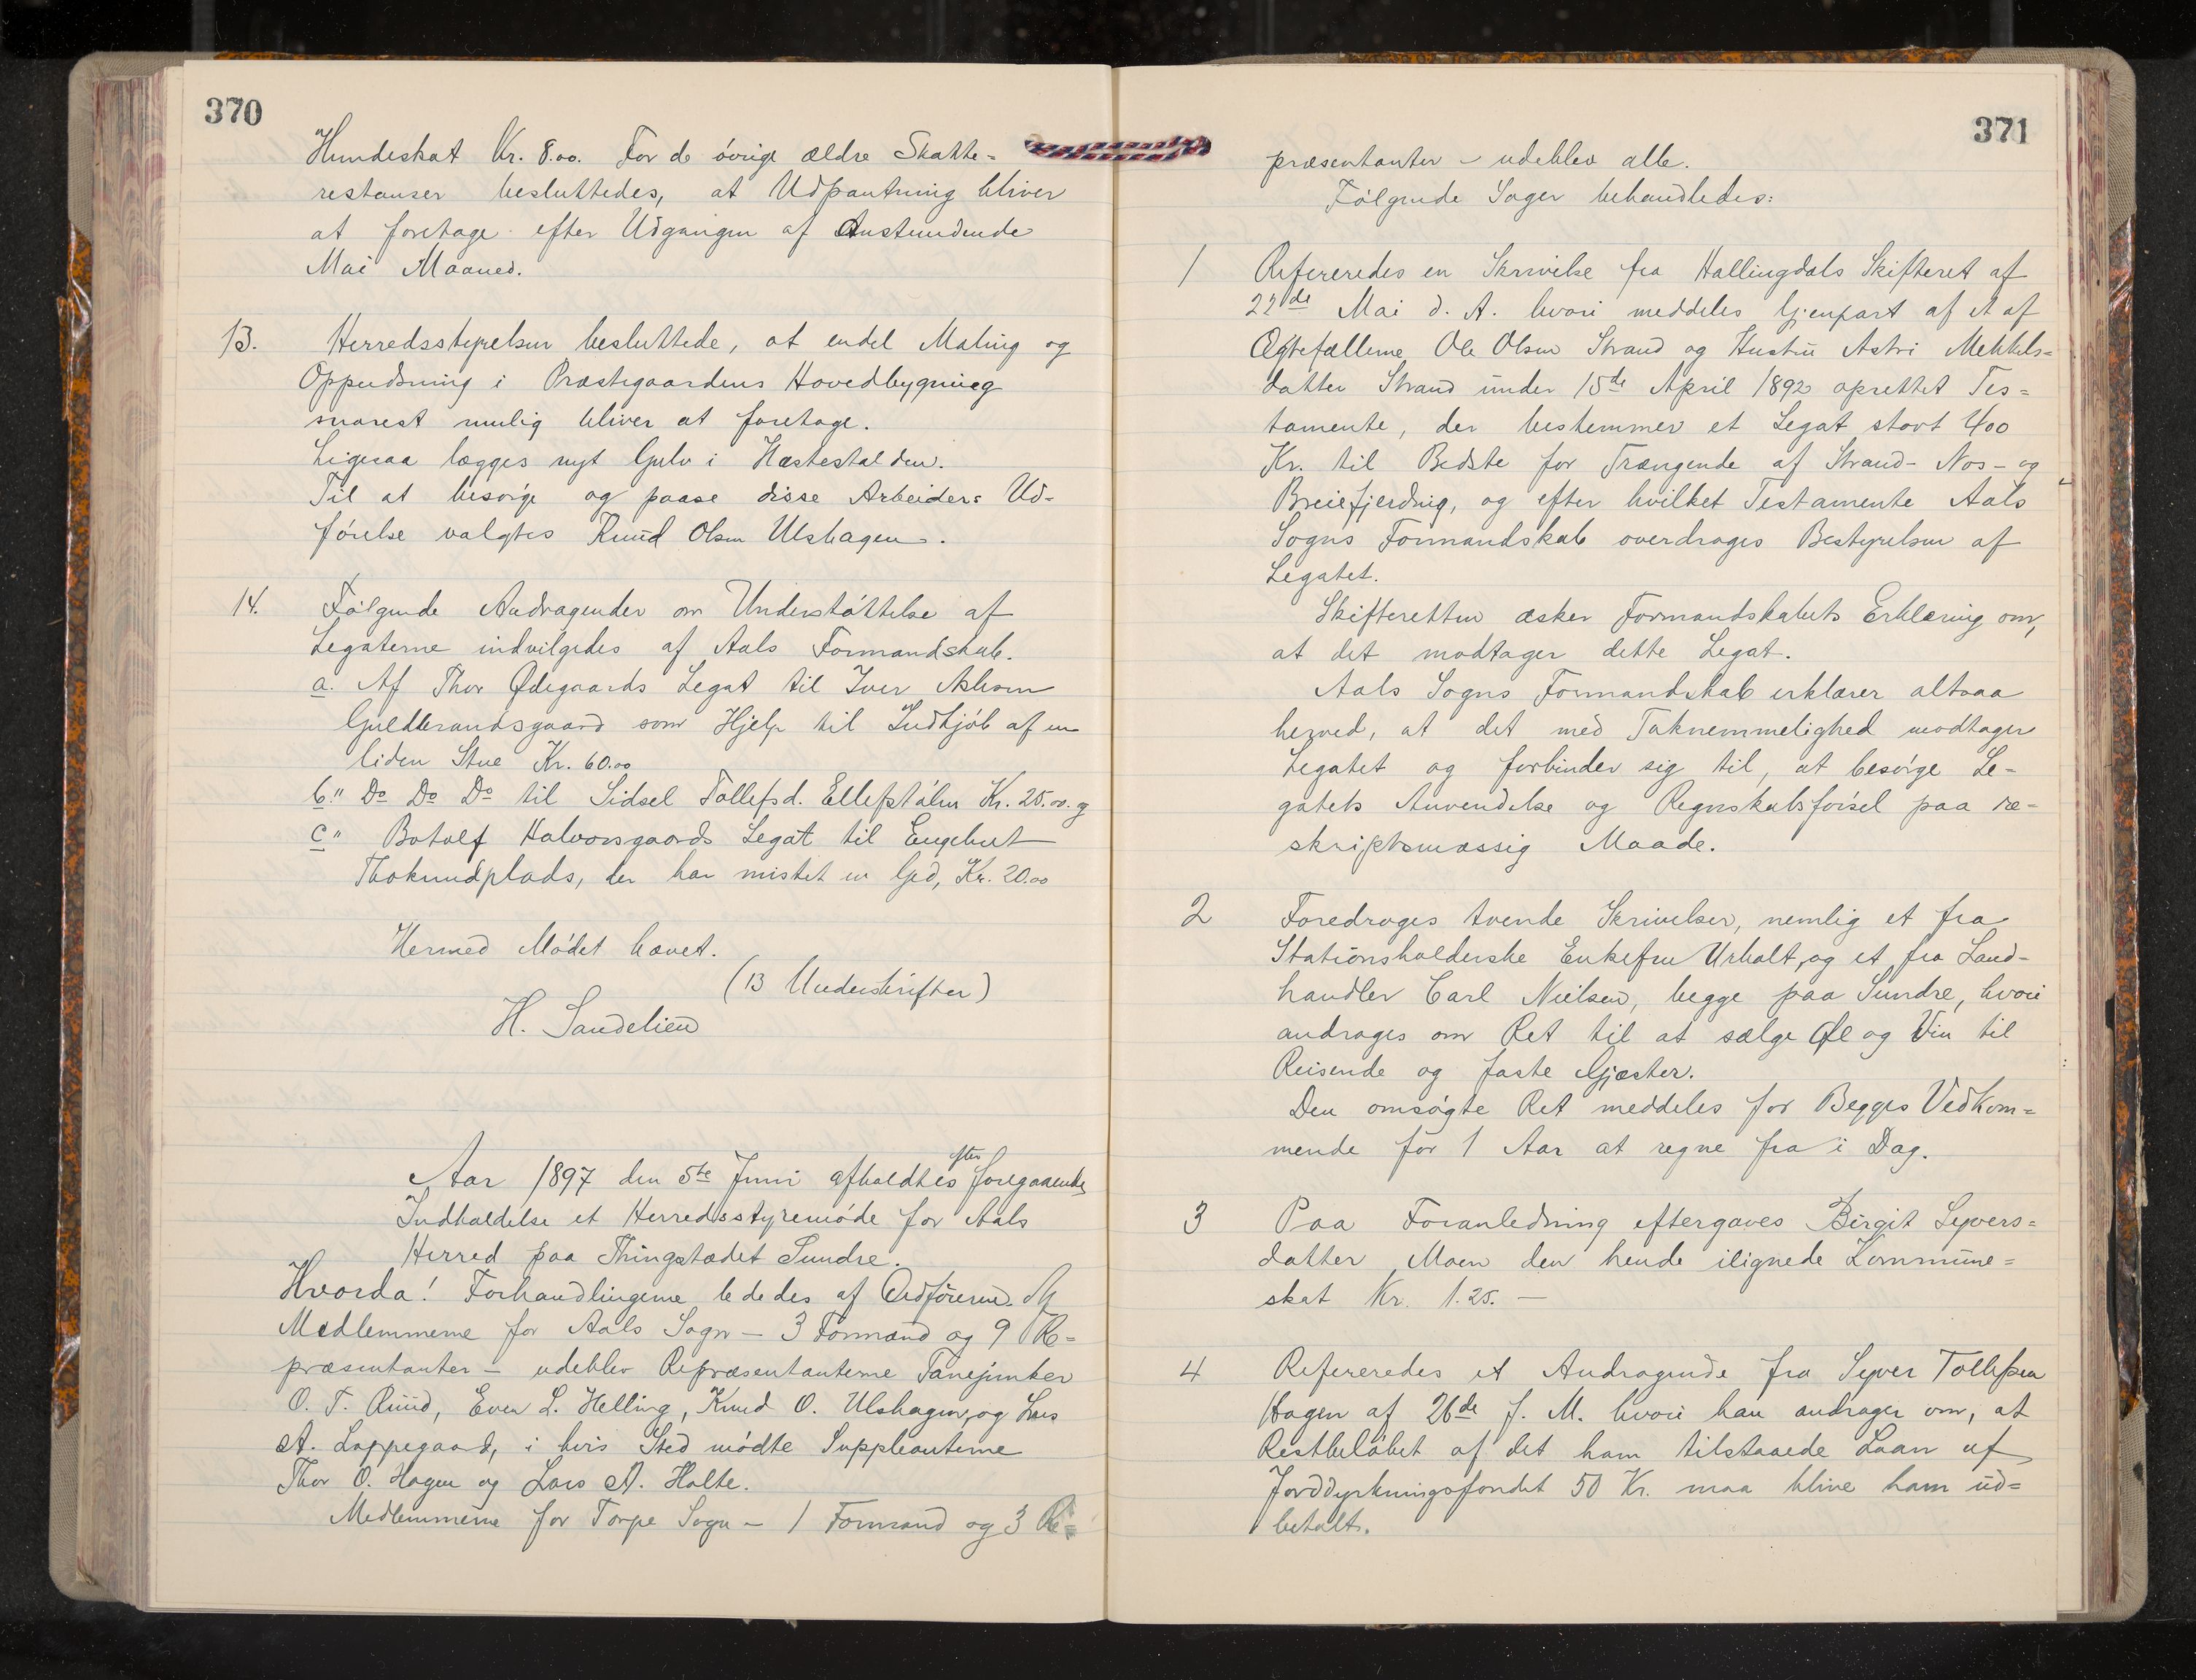 370
Hundeskat Kr. 8.00. For de øvrige ældre Skatte=
restanser besluttedes, at Udpantning bliver
at foretage efter Udgangen af Anstundende
Mai Maaned.
13. Herredsstyrelsen besluttede, at endel Maling og
Oppudsning i Præstegaardens Hovedbygning
snarest mulig bliver at foretage.
Ligesaa lægges nyt Gulv i Hæstestalden.
Til at besørge og paase disse Arbeiders Ud-
førelse valgtes Knud Olsen Ulshagen.
14. Følgende Andragender om Understøttelse af
Legaterne indvilgedes af Aals Formandskab.
a. Af Thor Ødegaards Legat til Iver Asleson
Guldbrandsgaard som Hjelp til Indkjøb af en
liden Stue Kr. 60.00
b." Do Do Do til Sidsel Tollefsd. Ellefstølen Kr. 25.00. og
c" Botolf Halvorsgaards Legat til Engebret
Thoknudplads, der har mistet en Gjed, Kr. 20.00
Hermed Mødet hævet.
(13 Underskrifter)
H. Sandelien
Aar 1897 den 5te Juni afholdtes efter foregaaende
Indkaldelse et Herredsstyremøde for Aals
Herred paa Thingstædet Sundre.
Hvorda! Forhandlingerne lededes af Ordføreren. Af
Medlemmerne for Aals Sogn – 3 Formænd og 9 Re=
præsentanter – udeblev Repræsentanterne Fanejunker
O. T. Ruud, Even L. Helling, Knud O. Ulshagen, og Lars
A. Lappegaard, i hvis Sted mødte Suppleanterne
Thor O. Hagen og Lars A. Holte.
Medlemmerne for Torpe Sogn – 1 Formand og 3 Re=
371
præsentanter – udeblev alle.
Følgende Sager behandledes:
1 Refereredes en Skrivelse fra Hallingdals Skifteret af
22de Mai d. A. hvori meddeles Gjenpart af et af
Ægtefællerne Ole Olsen Strand og Hustru Astri Mekkels=
datter Strand under 15de April 1892 oprettet Tes=
tamente, der bestemmer et Legat stort 400
Kr. til Bedste for Trængende af Strand- Nos- og
Breiefjerding, og efter hvilket Testamente Aals
Sogns Formandskab overdrages Bestyrelsen af
Legatet.
Skifteretten æsker Formandskabets Erklæring om,
at det modtager dette Legat.
Aals Sogns Formandskab erklærer altsaa
herved, at det med Taknemmelighed modtager
Legatet og forbinder sig til, at besørge Le-
gatets Anvendelse og Regnskabsførsel paa re-
skriptsmæssig Maade.
2 Foredroges tvende Skrivelser, nemlig et fra
Stationsholderske Enkefru Urholt, og et fra Land-
handler Carl Nielsen, begge paa Sundre, hvori
andrages om Ret til at sælge Øl og Vin til
Reisende og faste Gjæster.
Den omsøgte Ret meddeles for Begges Vedkom=
mende for 1 Aar at regne fra i Dag.
3 Paa Foranledning eftergaves Birgit Syvers=
datter Moen den hende ilignede Kommune=
skat Kr. 1.25. –
4 Refereredes et Andragende fra Syver Tollefsen
Hagen af 26de f. M. hvori han andrager om, at
Restbeløbet af det ham tilstaaede Laan af
Jorddyrkningsfondet 50 Kr. maa blive ham ud=
betalt.